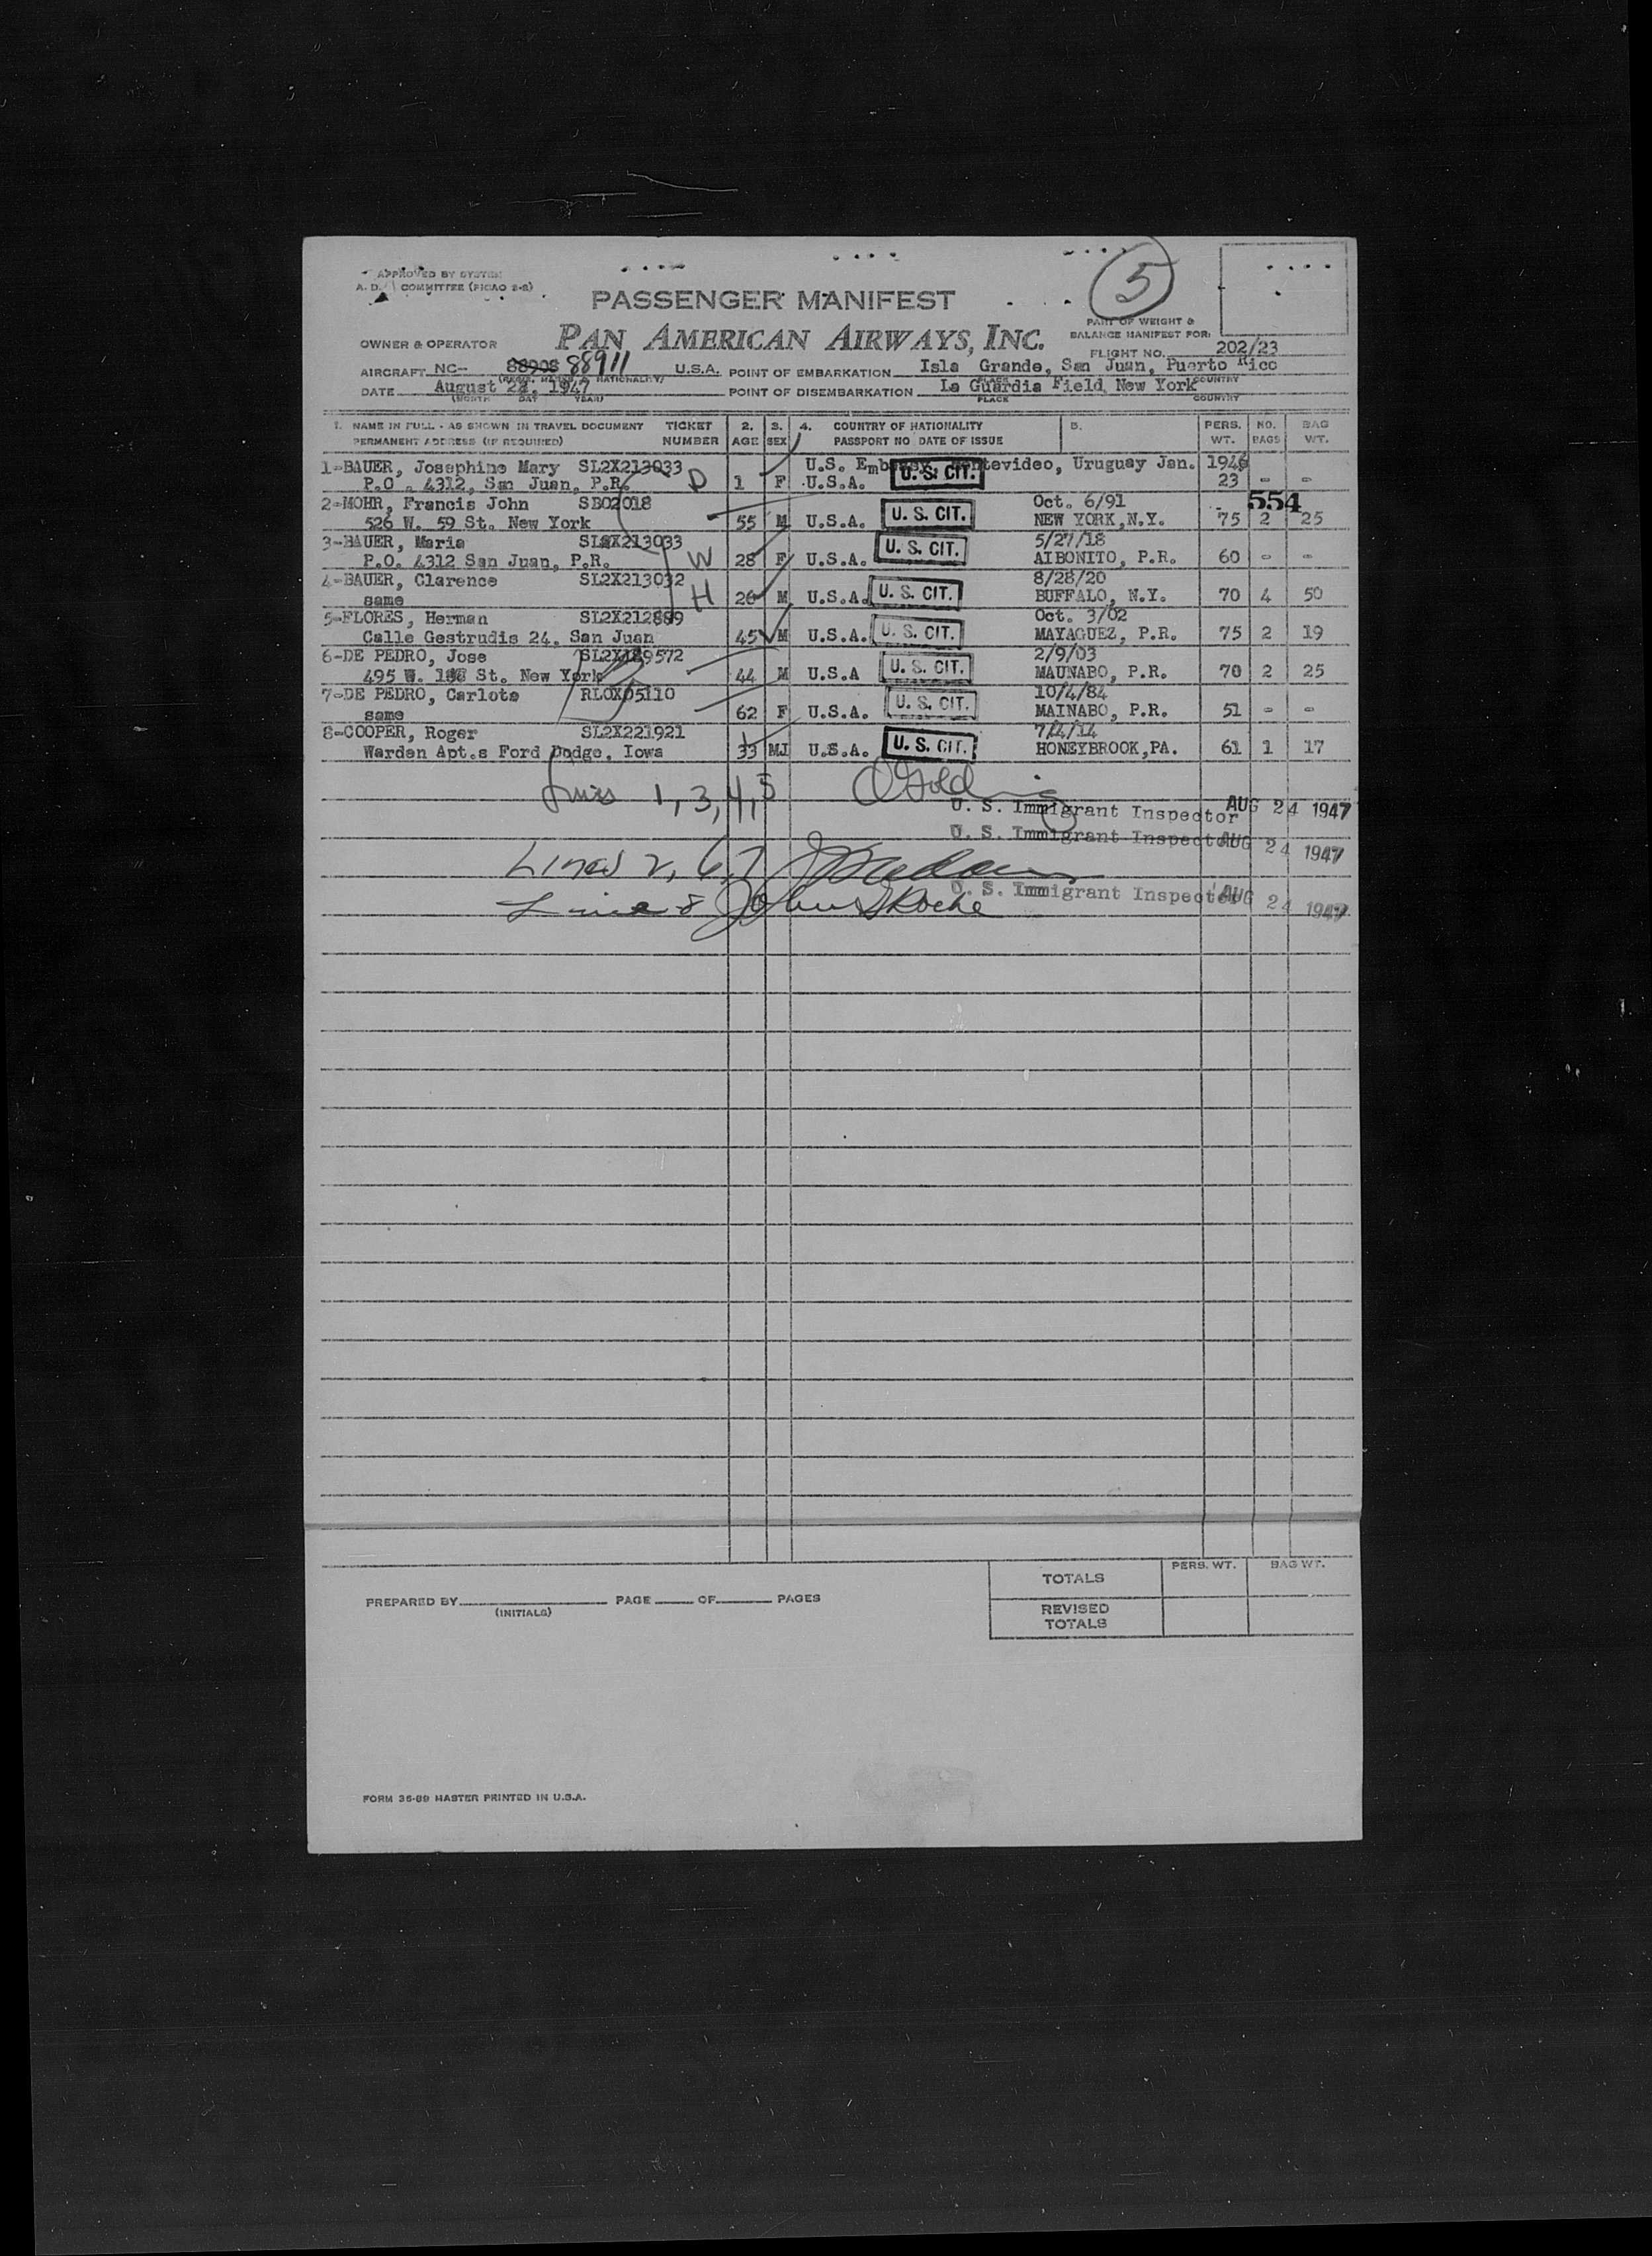 APPROVED BY SYSTEM
A. D. COMMITTEE (PICAO 2-2)
5
PASSENGER MANIFEST
PAN AMERICAN AIRWAYS, INC.
PART OF WEIGHT &
BALANCE MANIFEST FOR:
OWNER & OPERATOR
FLIGHT NO. 202/23
AIRCRAFT NC- 88908 88911 U.S.A. POINT OF EMBARKATION Isla Grande, San Juan, Puerto Rico
DATE August 24, 1947 POINT OF DISEMBARKATION La Guardia Field, New York
(MONTH DAY YEAR) PLACE COUNTRY
1. NAME IN FULL - AS SHOWN IN TRAVEL DOCUMENT TICKET 2. 3. 4. COUNTRY OF NATIONALITY 5. PERS. NO. BAG
PERMANENT ADDRESS (IF REQUIRED) NUMBER AGE SEX PASSPORT NO DATE OF ISSUE WT. BAGS WT.
1-BAUER, Josephine Mary SL2X213033 U.S. Embassy Montevideo, Uruguay Jan. 1946
P.O. 4312, San Juan, P.R. D 1 F U.S.A. U. S. CIT. 23 - -
2-MOHR, Francis John SB02018 Oct. 6/91 554
526 W. 59 St. New York 55 M U.S.A. U. S. CIT. NEW YORK, N.Y. 75 2 25
3-BAUER, Maria SL2X213033 5/27/18
P.O. 4312 San Juan, P.R. W 28 F U.S.A. U. S. CIT. AIBONITO, P.R. 60 - -
4-BAUER, Clarence SL2X213032 8/28/20
same H 26 M U.S.A. U. S. CIT. BUFFALO, N.Y. 70 4 50
5-FLORES, Herman SL2X212889 Oct. 3/02
Calle Gestrudis 24, San Juan 45 M U.S.A. U. S. CIT. MAYAGUEZ, P.R. 75 2 19
6-DE PEDRO, Jose SL2X189572 2/9/03
495 W. St. New York 44 M U.S.A U. S. CIT. MAUNABO, P.R. 70 2 25
7-DE PEDRO, Carlota RLOX05110 10/4/84
same 62 F U.S.A. U. S. CIT. MAINABO, P.R. 51 - -
8-COOPER, Roger SL2X221921 7/4/14
Warden Apt.s Ford Dodge, Iowa 33 M U.S.A. U. S. CIT. HONEYBROOK, PA. 61 1 17
Lines 1, 3, 4, 5
U. S. Immigrant Inspector AUG 24 1947
U. S. Immigrant Inspector AUG 24 1947
Lines 2, 6, 7
U. S. Immigrant Inspector AUG 24 1947
Line 8 John Roche
PERS. WT. BAG WT.
TOTALS
PREPARED BY PAGE OF PAGES
(INITIALS)
REVISED
TOTALS
FORM 36-89 MASTER PRINTED IN U.S.A.